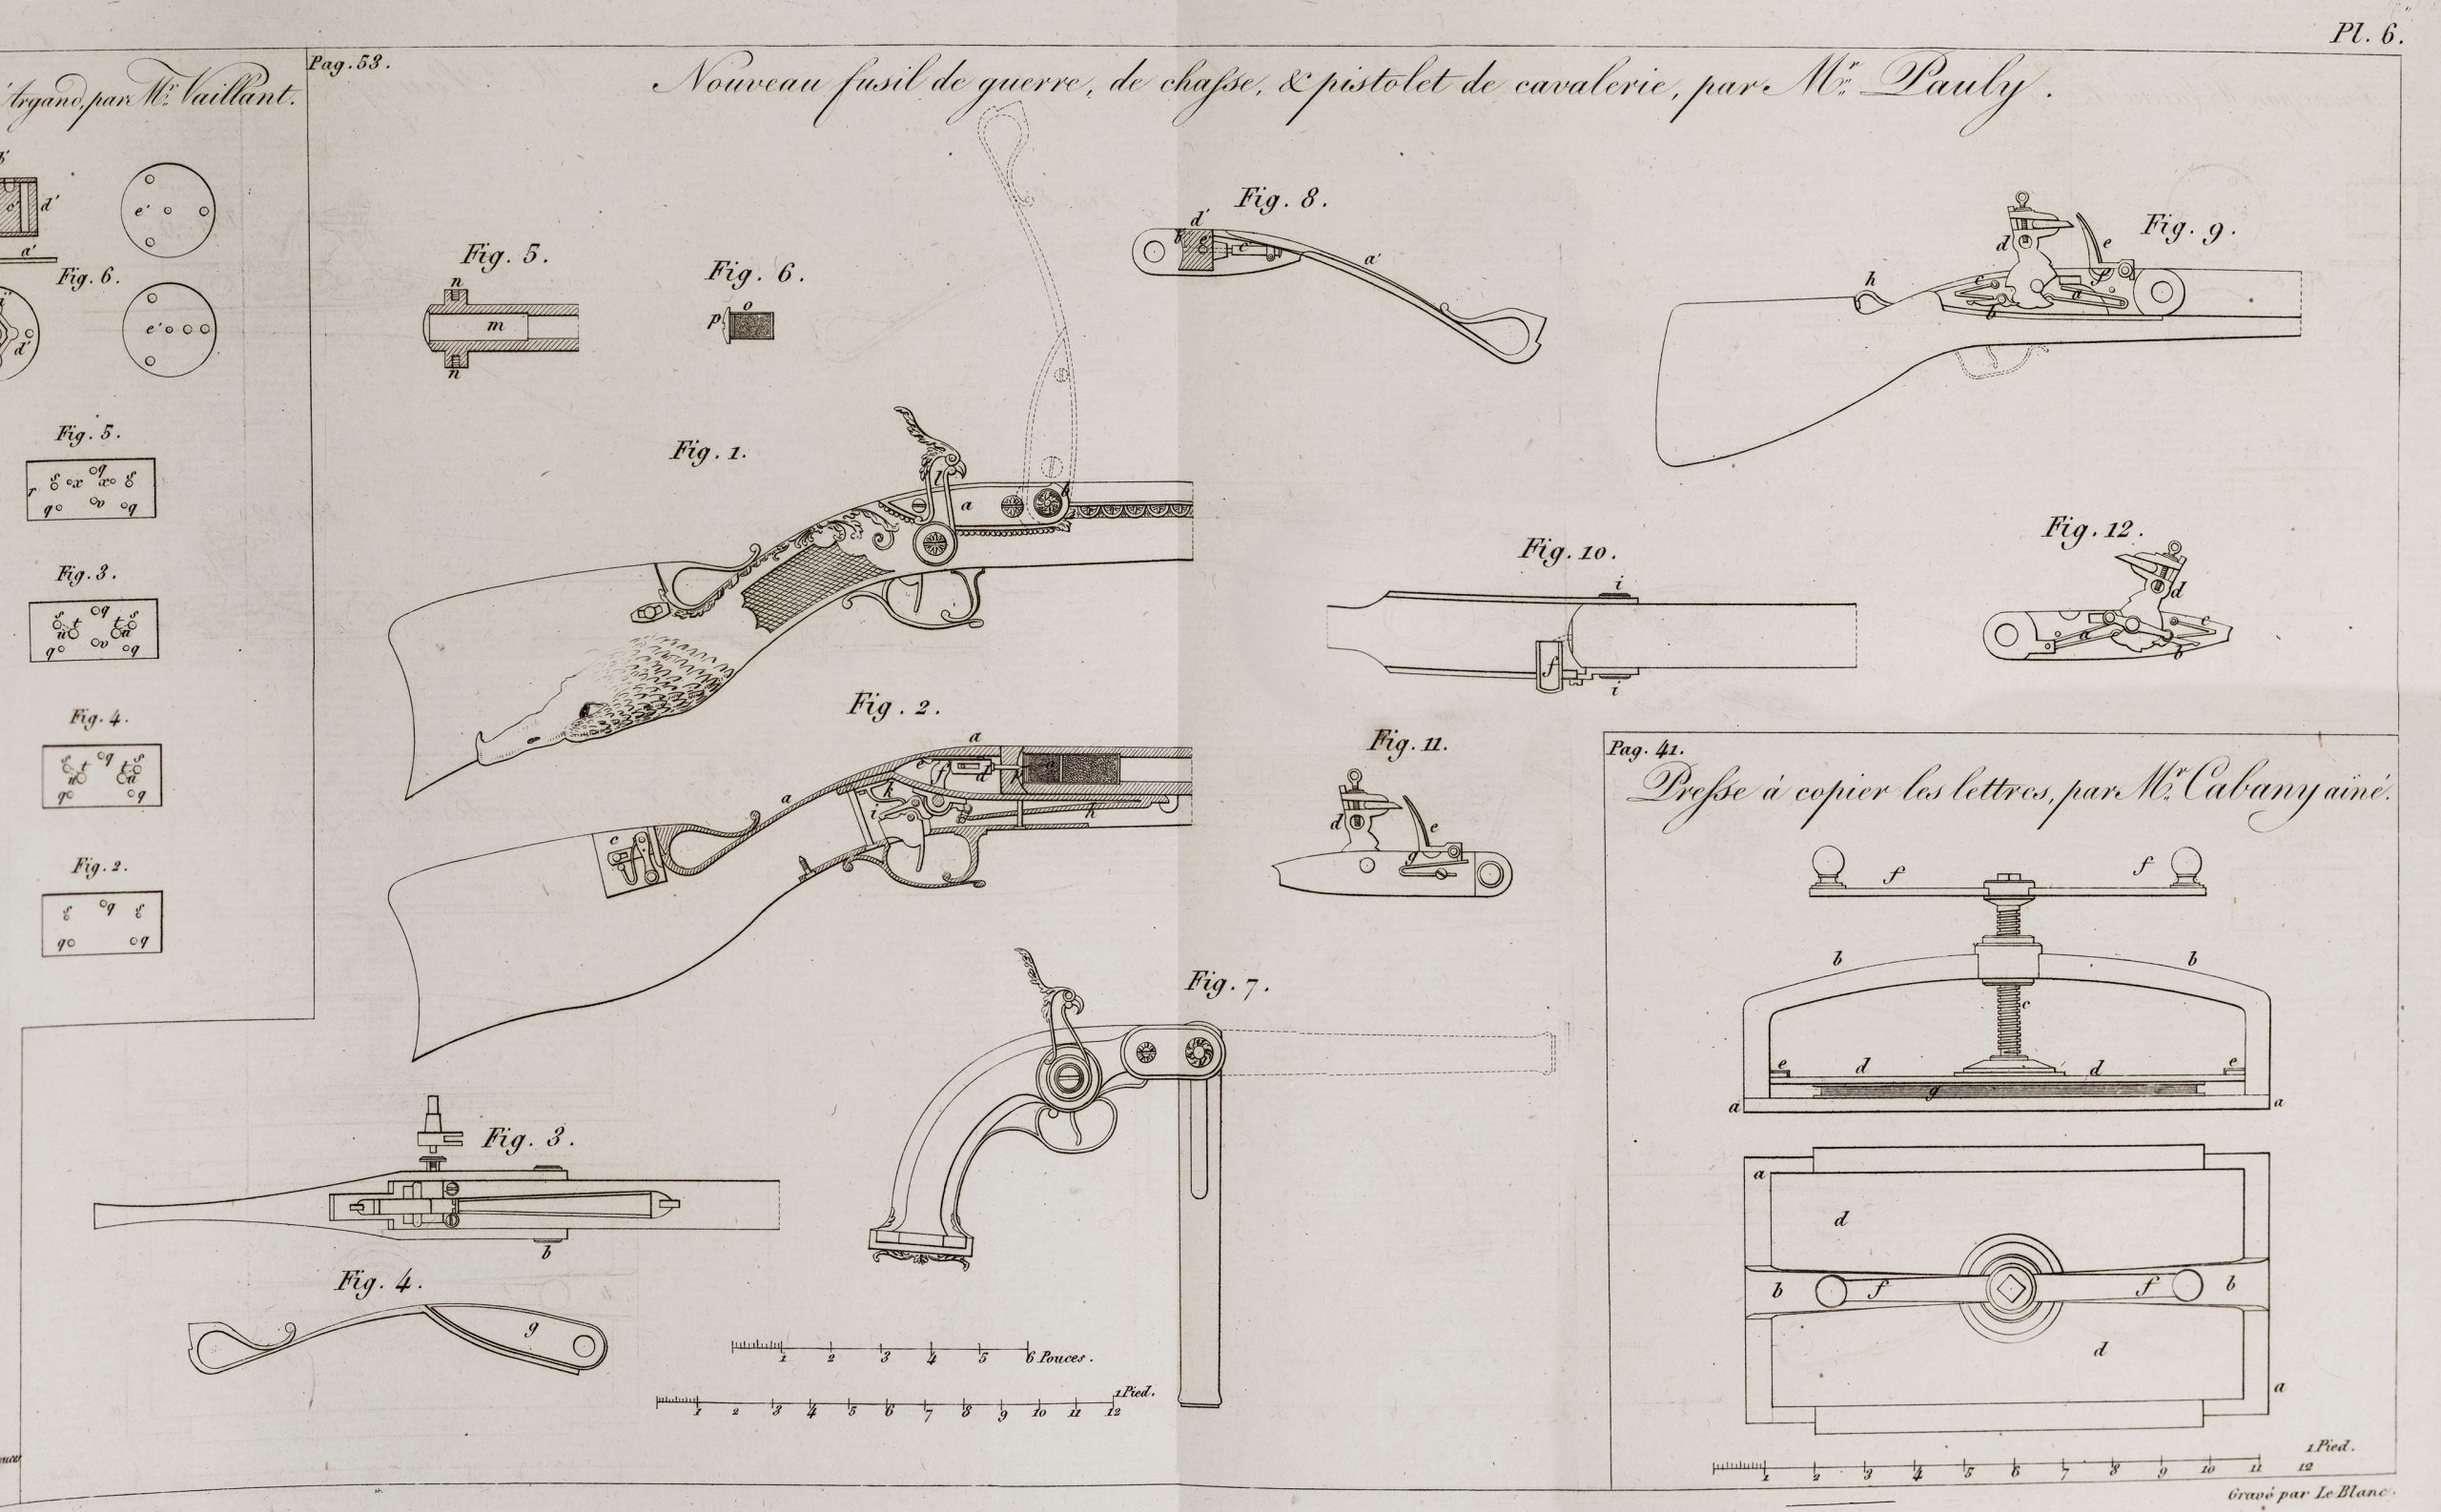 Pl. 6.
Pag. 53.
Argand, par Mr. Vaillant.
Nouveau fusil de guerre, de chaſse, & pistolet de cavalerie, par Mr. Pauly.
b'
c' d'
a'
e'
Fig. 6.
d'
e'
Fig. 5.
q
s x x s
r
q v q
Fig. 3.
s q s
u t t u
q v q
Fig. 4.
s q s
u t t u
q q
Fig. 2.
s q s
q q
Fig. 5.
n
m
n
Fig. 6.
o
p
Fig. 8.
d'
c
a'
Fig. 9.
d e
h c f
a
b
Fig. 1.
l
a
Fig. 10.
i
f
i
Fig. 12.
d
c
a
b
Fig. 2.
a
e f d p o
a k
i h
c
Fig. 11.
d e
g
Fig. 7.
Fig. 3.
b
Fig. 4.
g
1 2 3 4 5 6 Pouces.
1 Pied.
1 2 3 4 5 6 7 8 9 10 11 12
Pag. 41.
Preſse à copier les lettres, par Mr. Cabany ainé.
f f
b b
c
e d d e
g
a a
a
d
b f f b
d
a
1 Pied.
1 2 3 4 5 6 7 8 9 10 11 12
Gravé par Le Blanc.